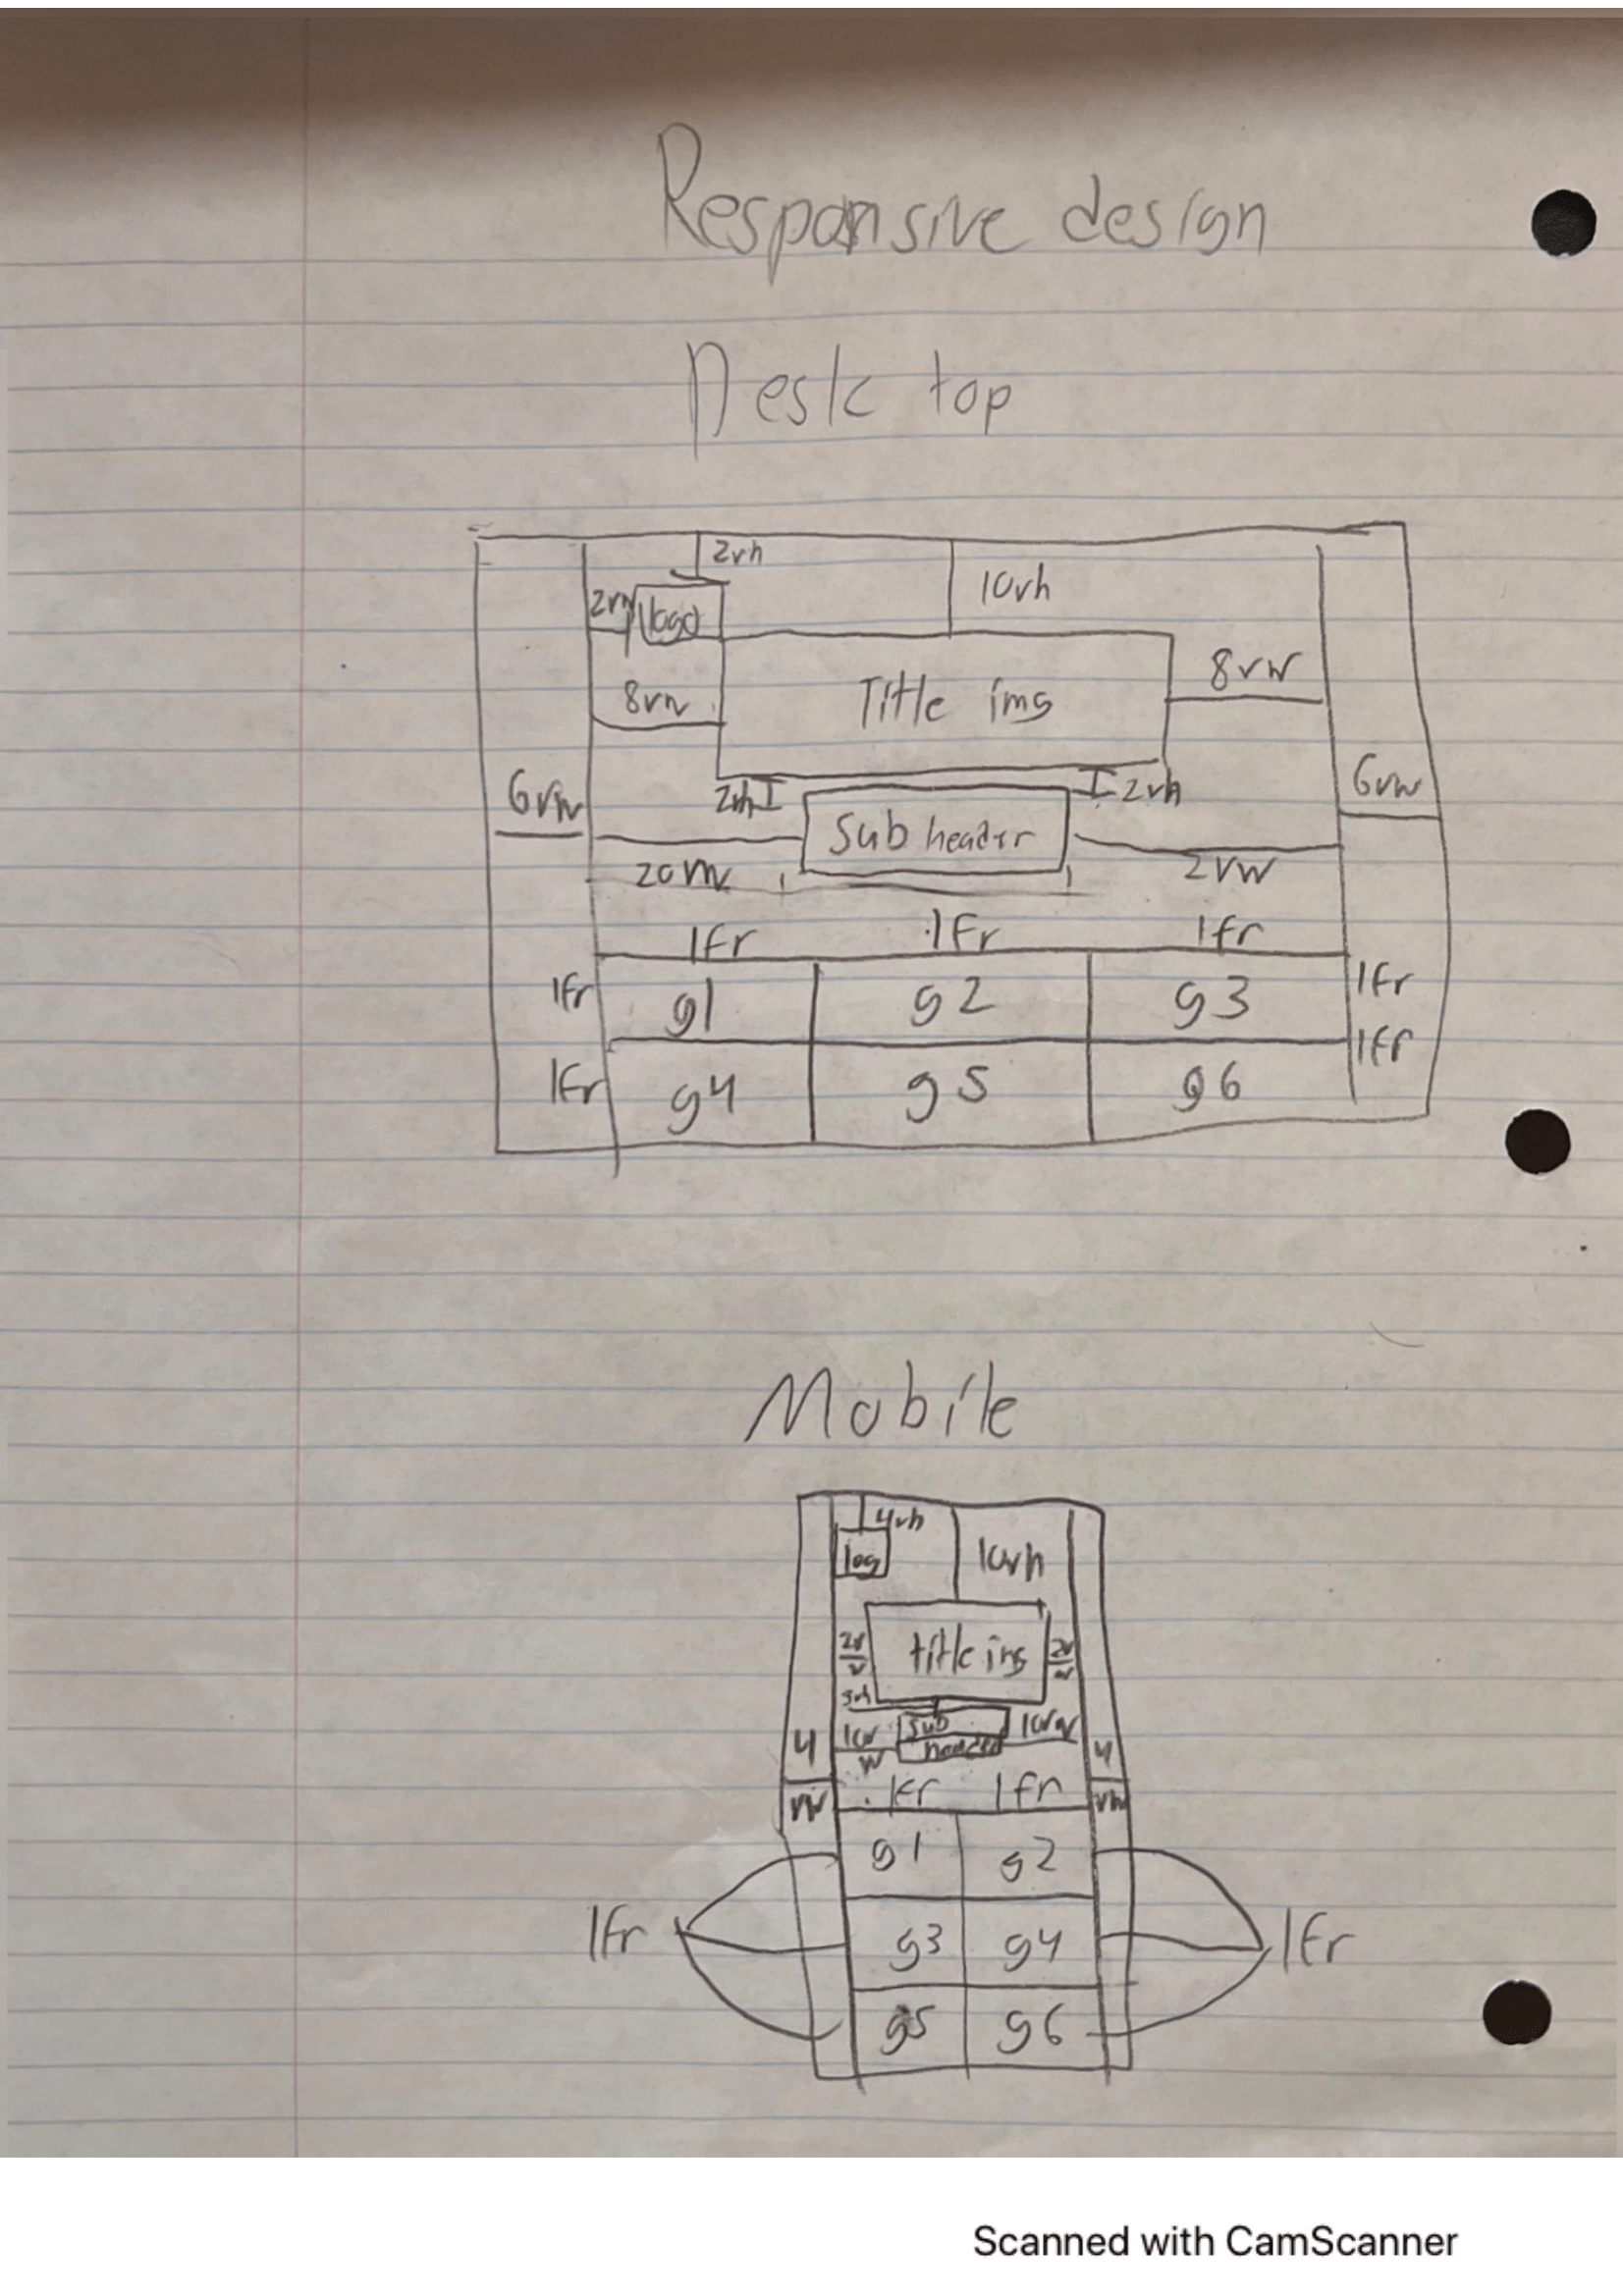 Responsive design
Desktop
2vh
10vh
2vw
logo
8vw
Title img
8vw
6vw
2vh
2vh
6vw
Sub header
20vw
2vw
1fr 1fr 1fr
1fr g1 g2 g3 1fr
1fr g4 g5 g6 1fr
Mobile
4vh
log
10vh
2v
w
title img
2v
w
3vh
4
vw
10v
w
sub
header
10vw
4
vw
1fr 1fr
g1 g2
1fr g3 g4 1fr
g5 g6
Scanned with CamScanner